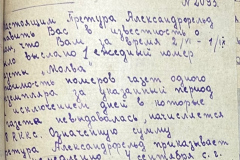 № 2033.
настоящим Претура Александрфельд
ставить Вас в известность о
том, что Вам за время 2/VI - 1/IX
было выслано 1 ежедневный номер
газеты „Молва“
стоимость номеров газет одного
экземпляра за указанный период
за исключением дней в которые
газета невыдавалась, начисляется
Р.К.К.С. Означенную сумму
Претура Александрфельд приказывает
сентября с. г.